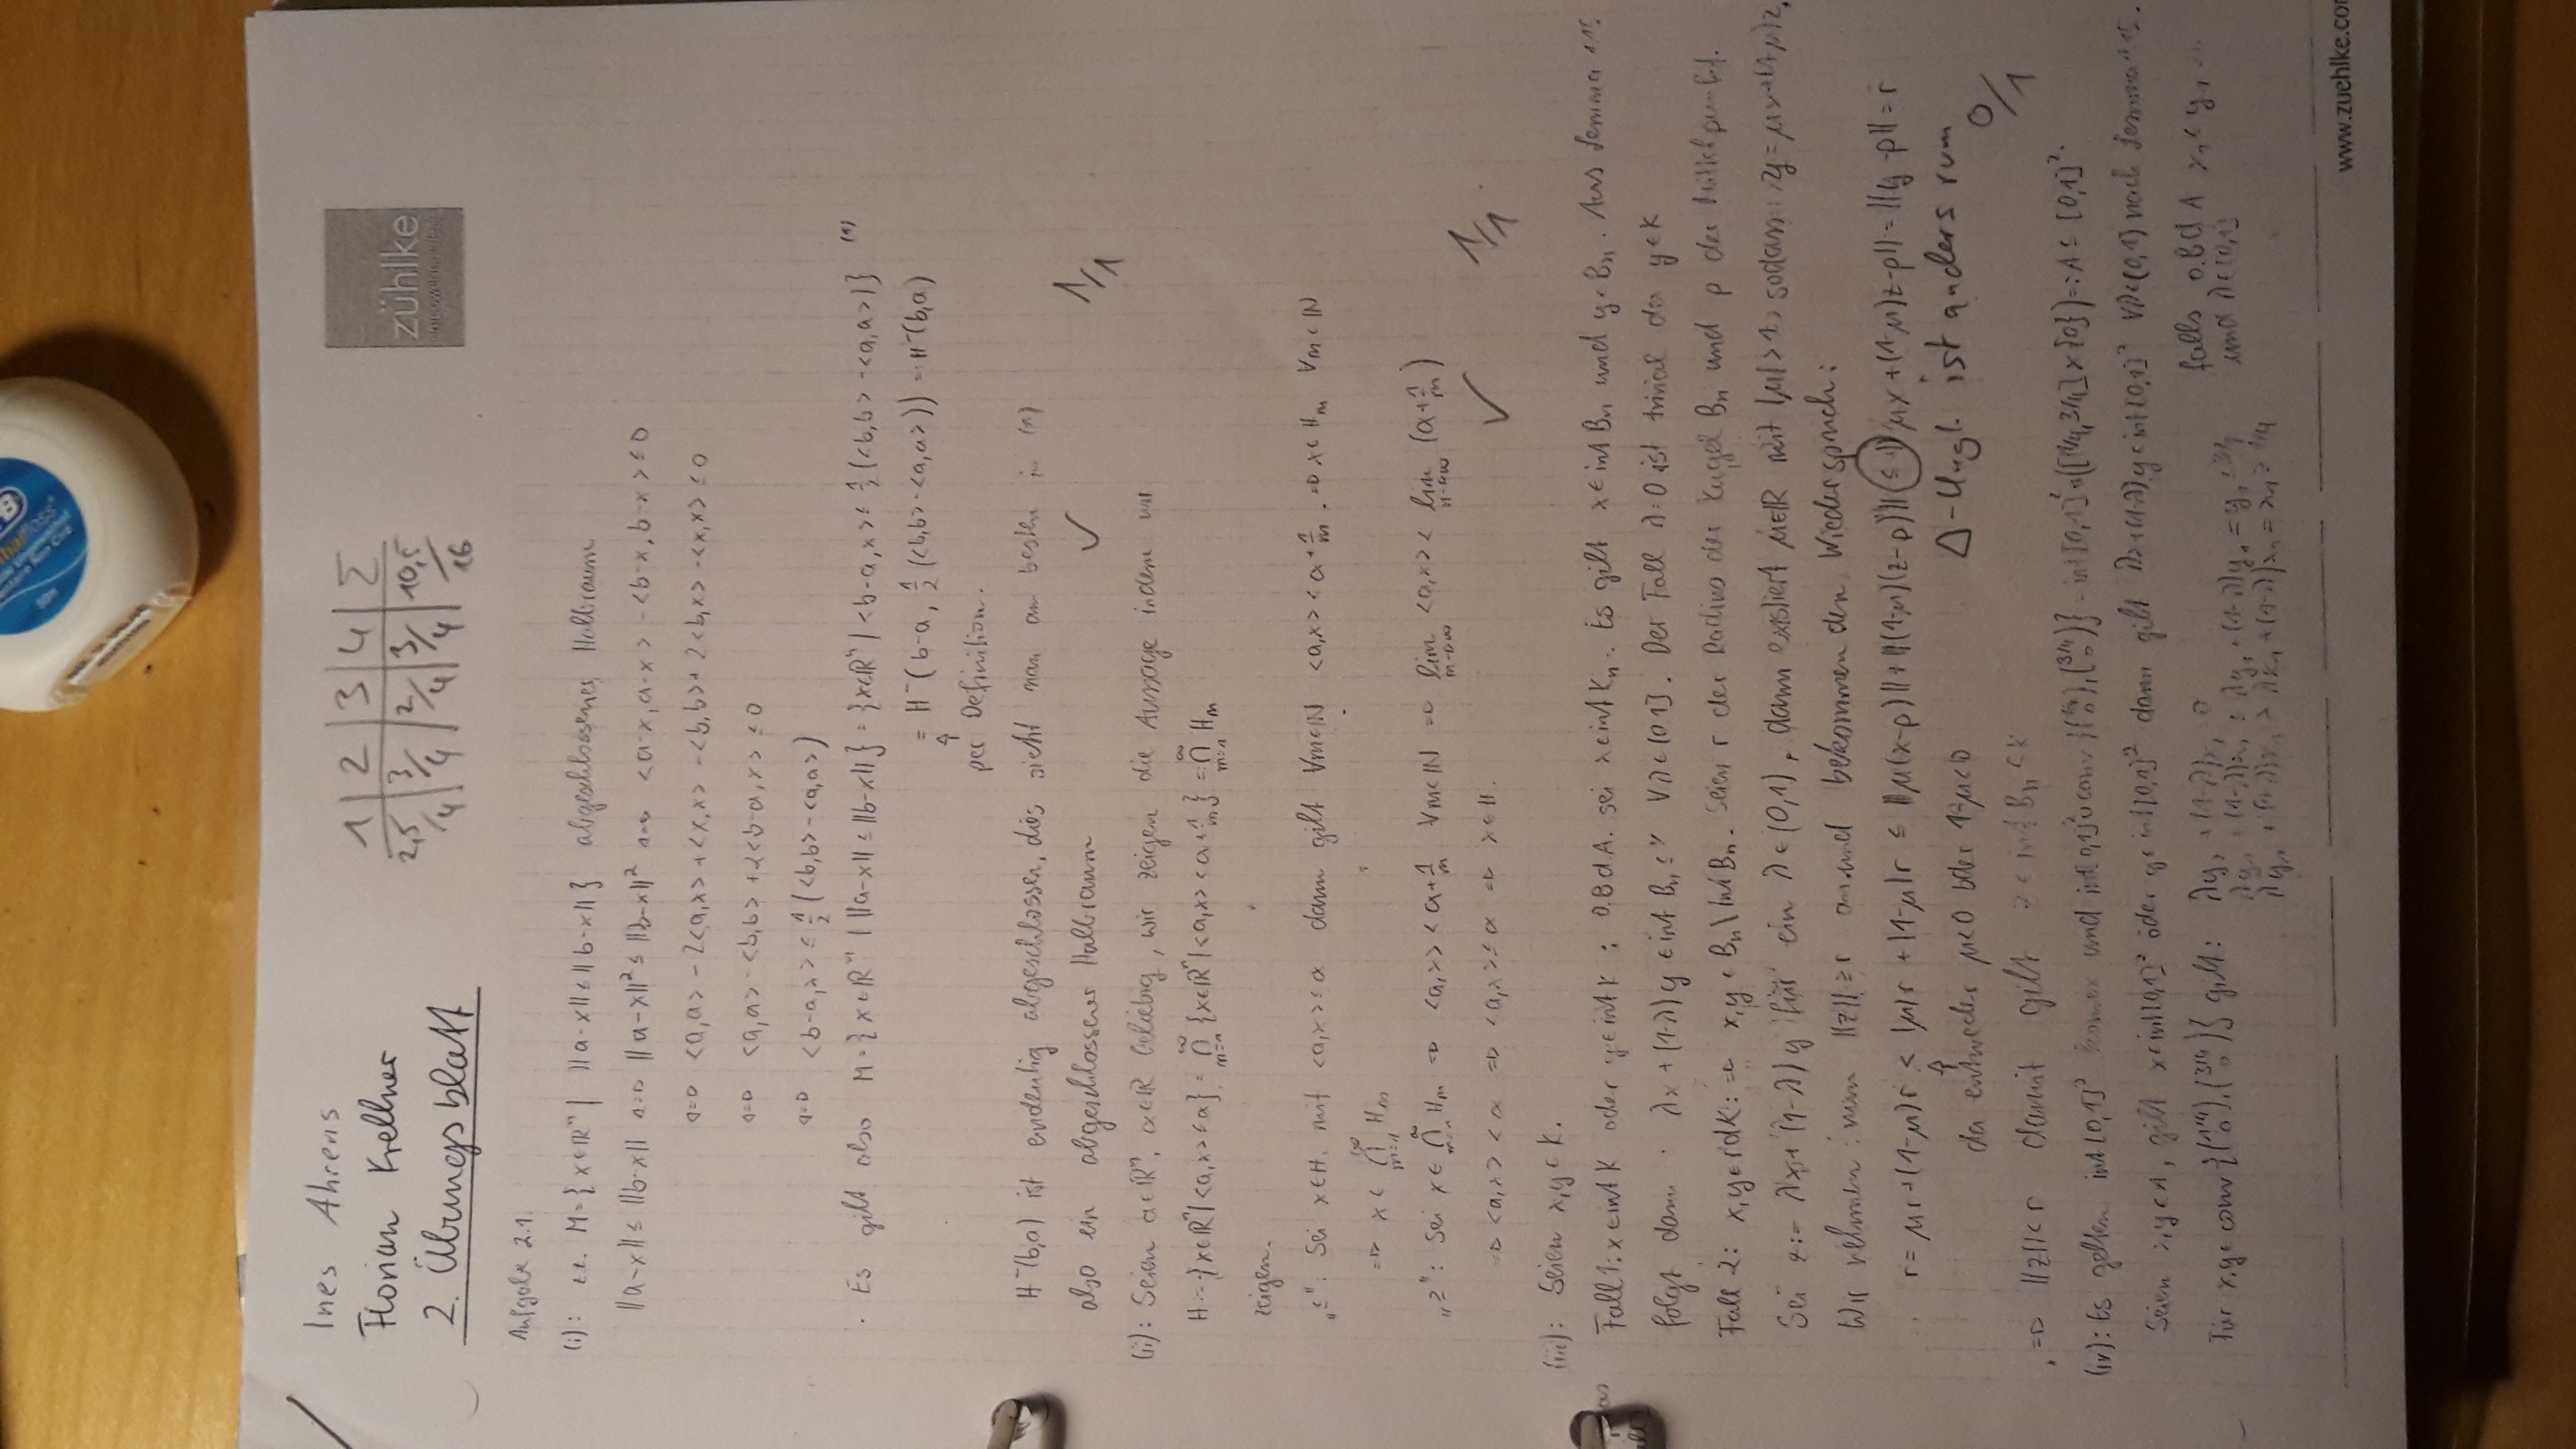 Ines Ahrens
Florian Krellner
2. Übungsblatt
1 | 2 | 3 | 4 | Σ
2,5/4 | 3/4 | 2/4 | 3/4 | 10,5/16
zühlke
Aufgabe 2.1.
(i): z.z. M={x∈ℝⁿ| ||a-x||≤||b-x||} abgeschlossener Halbraum
||a-x||≤||b-x|| ⇔ ||a-x||²≤||b-x||² ⇔ <a-x,a-x>-<b-x,b-x>≤0
⇔ <a,a>-2<a,x>+<x,x>-<b,b>+2<b,x>-<x,x>≤0
⇔ <a,a>-<b,b>+2<b-a,x>≤0
⇔ <b-a,x>≤½(<b,b>-<a,a>)
Es gilt also M={x∈ℝⁿ| ||a-x||≤||b-x||}={x∈ℝⁿ|<b-a,x>≤½(<b,b>-<a,a>)}
= H⁻(b-a, ½(<b,b>-<a,a>)) = H⁻(b,a)
per Definition.
H⁻(b,a) ist eindeutig abgeschlossen, dies sieht man am besten in
also ein abgeschlossener Halbraum ✓ 1/1
(ii): Seien a∈ℝⁿ, α∈ℝ beliebig, wir zeigen die Aussage indem wir
H:={x∈ℝⁿ|<a,x>≤α}=⋂_{m=1}^∞{x∈ℝⁿ|<a,x><α+1/m}=⋂_{m=1}^∞ H_m
zeigen.
„⊆": Sei x∈H, mit <a,x>≤α dann gilt ∀m∈ℕ <a,x><α+1/m. ⇒ x∈H_m ∀m∈ℕ
⇒ x∈⋂_{m=1}^∞ H_m
„⊇": Sei x∈⋂_{m=1}^∞ H_m ⇒ <a,x><α+1/m ∀m∈ℕ ⇒ lim_{m→∞}<a,x> < lim_{n→∞}(α+1/m)
⇒ <a,x><α ⇒ <a,x>≤α ⇒ x∈H. ✓ 1/1
(iii): Seien x,y∈K.
Fall 1: x∈int K oder y∈int K: O.B.d.A. sei x∈int K_n. Es gilt x∈int B_n und y∈B_n. Aus Lemma
folgt dann λx+(1-λ)y∈int B_n ⊆ K ∀λ∈(0,1]. Der Fall λ=0 ist trivial da y∈K
Fall 2: x,y∈rd K: ⇒ x,y∈B_n\int B_n. Seien r der Radius der Kugel B_n und p der Mittelpunkt.
Sei z:=λx+(1-λ)y für ein λ∈(0,1), dann existiert μ∈ℝ mit |μ|>1, sodass y=μx+(1-μ)z.
Wir nehmen nun ||z||≥r an und bekommen den Wiederspruch:
r=μr+(1-μ)r<|μ|r+|1-μ|r≤||μ(x-p)||+||(1-μ)(z-p)||≤||μx+(1-μ)z-p||=||y-p||=r
da entweder μ<0 oder 1-μ<0 Δ-Ungl. ist anders rum
0/1
⇒ ||z||<r damit gilt z∈int B_n⊂K
(iv): Es gelten int[0,1]² konvex und int[0,1]²∪conv{(1/4 0),(3/4 0)}=int[0,1]²∪([1/4,3/4]×{0})=:A⊆[0,1]².
Seien x,y∈A, gilt x∈int[0,1]² oder y∈int[0,1]² dann gilt λx+(1-λ)y∈int[0,1]² ∀λ∈(0,1) nach Lemma
Für x,y∈conv{(1/4 0),(3/4 0)} gilt: λy₂+(1-λ)x₂=0 falls o.B.d.A x₁≤y₁
λy₁+(1-λ)x₁≤λy₁+(1-λ)y₁=y₁≤3/4 und λ∈[0,1]
λy₁+(1-λ)x₁≥λx₁+(1-λ)x₁=x₁≥1/4
www.zuehlke.co